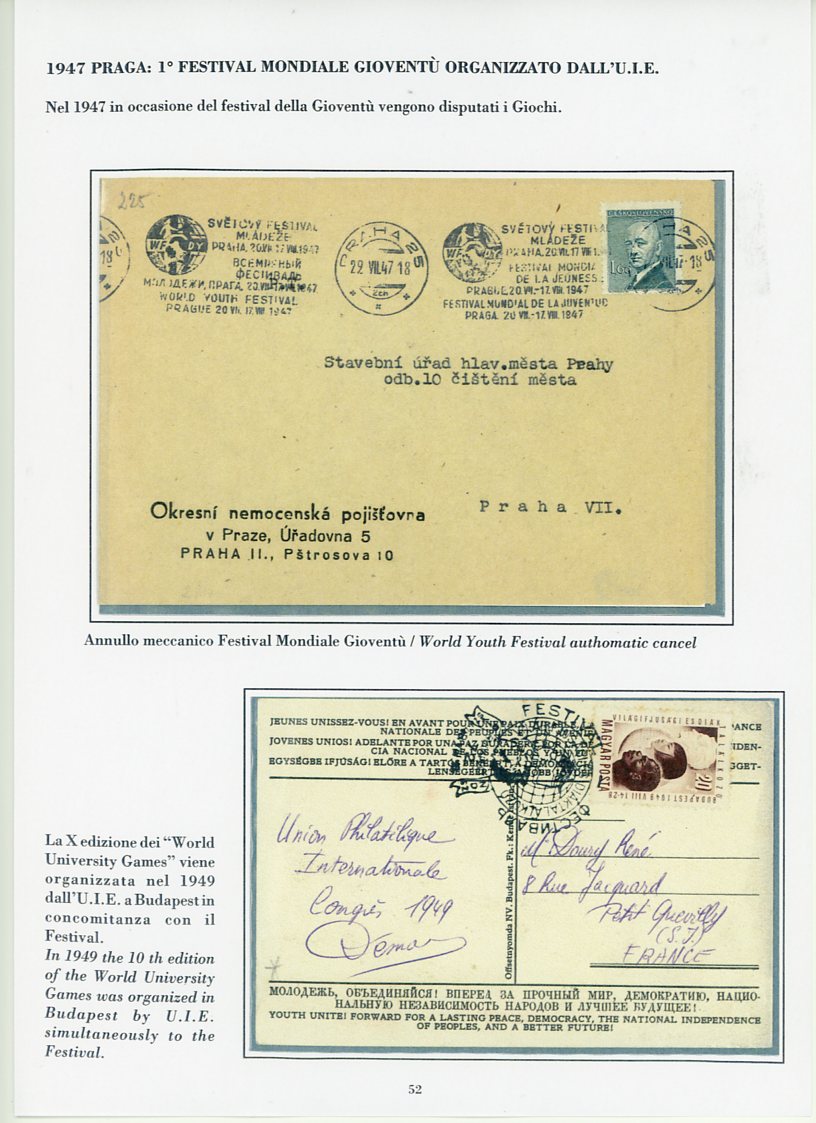 1947 PRAGA: 1° FESTIVAL MONDIALE GIOVENTÙ ORGANIZZATO DALL'U.I.E.
Nel 1947 in occasione del festival della Gioventù vengono disputati i Giochi.
225
SVĚTOVÝ FESTIVAL
MLÁDEŽE
PRAHA, 20.VII.-17.VIII.1947
ВСЕМИРНЫЙ
ФЕСТИВАЛЬ
МОЛОДЕЖИ, ПРАГА, 20.VII.-17.VIII.1947
WORLD YOUTH FESTIVAL
PRAGUE 20 VII. 17. VIII 1947
WFDY
PRAHA 25
22 VII.47 18
SVĚTOVÝ FESTIVAL
MLÁDEŽE
PRAHA, 20.VII. 17 VIII.
FESTIVAL MONDIA
DE LA JEUNESS
PRAGUE, 20.VII.-17.VIII. 1947
FESTIVAL MUNDIAL DE LA JUVENTUD
PRAGA. 20 VII.-17.VIII.1947
WFDY
ČESKOSLOVENSKO
1.60
Stavební úřad hlav.města Prahy
odb.10 čištění města
Praha VII.
Okresní nemocenská pojišťovna
v Praze, Úřadovna 5
PRAHA II., Pštrosova 10
Annullo meccanico Festival Mondiale Gioventù / World Youth Festival authomatic cancel
JEUNES UNISSEZ-VOUS! EN AVANT POUR UNE PAIX DURABLE
NATIONALE DES PEUPLES ET UN AVENIR
JOVENES UNIOS! ADELANTE POR UNA PAZ DURADERA POR LA DE
CIA NACIONAL DE LOS PUEBLOS Y
EGYSÉGBE IFJÚSÁG! ELŐRE A TARTÓS BÉKÉÉRT, A DEMOKRÁCI
LENSÉGÉÉRT JOBB JÖVŐÉR
FESTIVAL
ФЕСТИВАЛЬ
VILÁGIFJUSÁGI ÉS DIÁK
TALÁLKOZÓ
BUDAPEST 1949 VIII 14-28
MAGYAR POSTA
20
Union Philatélique
Internationale
Congrès 1949
Offsetnyomda NV. Budapest. Fk.:
Mr Doury René
8 Rue Jacquard
Petit Quevilly
(S.I)
FRANCE
МОЛОДЕЖЬ, ОБЪЕДИНЯЙСЯ! ВПЕРЕД ЗА ПРОЧНЫЙ МИР, ДЕМОКРАТИЮ, НАЦИО-
НАЛЬНУЮ НЕЗАВИСИМОСТЬ НАРОДОВ И ЛУЧШЕЕ БУДУЩЕЕ!
YOUTH UNITE! FORWARD FOR A LASTING PEACE, DEMOCRACY, THE NATIONAL INDEPENDENCE
OF PEOPLES, AND A BETTER FUTURE!
La X edizione dei "World
University Games" viene
organizzata nel 1949
dall'U.I.E. a Budapest in
concomitanza con il
Festival.
In 1949 the 10 th edition
of the World University
Games was organized in
Budapest by U.I.E.
simultaneously to the
Festival.
52